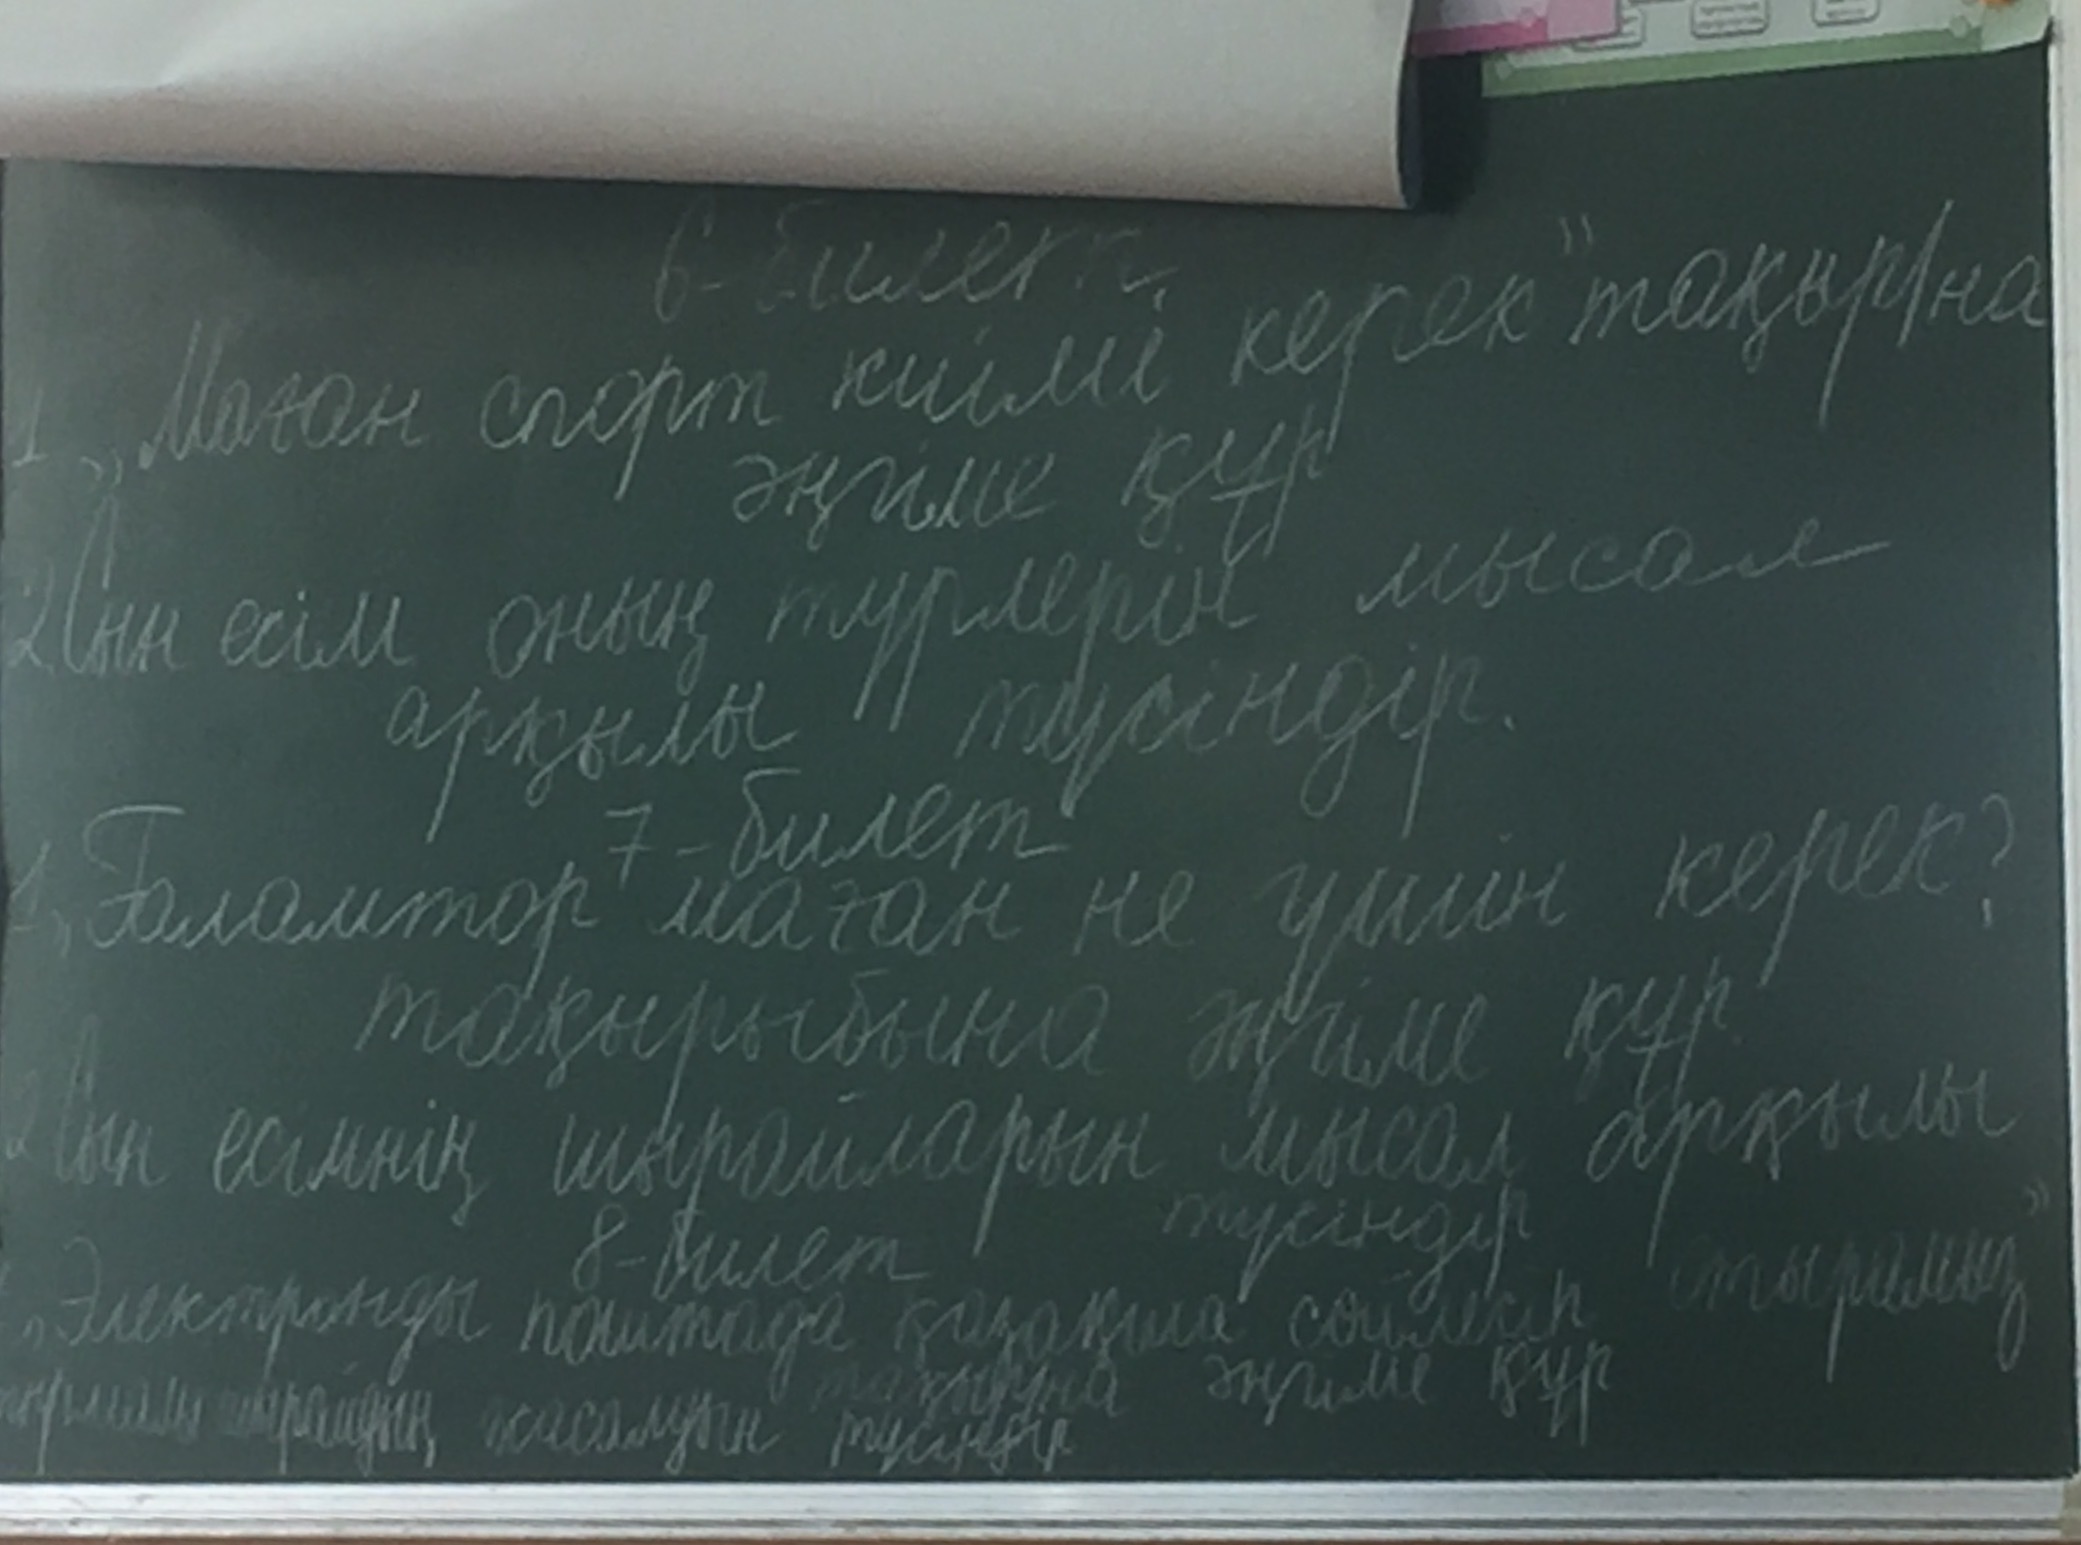 6-билет.
1. „Маған спорт киімі керек" тақыр/на
әңгіме құр
2. Сын есім оның түрлерін мысал
арқылы түсіндір.
7-билет
1. „Ғаламтор маған не үшін керек?
тақырыбына әңгіме құр.
2. Сын есімнің шырайларын мысал арқылы
түсіндір
8-билет
„Электронды поштада қазақша сөйлесіп отырамыз"
тақырына әңгіме құр
шырайдың жасалуын түсіндір